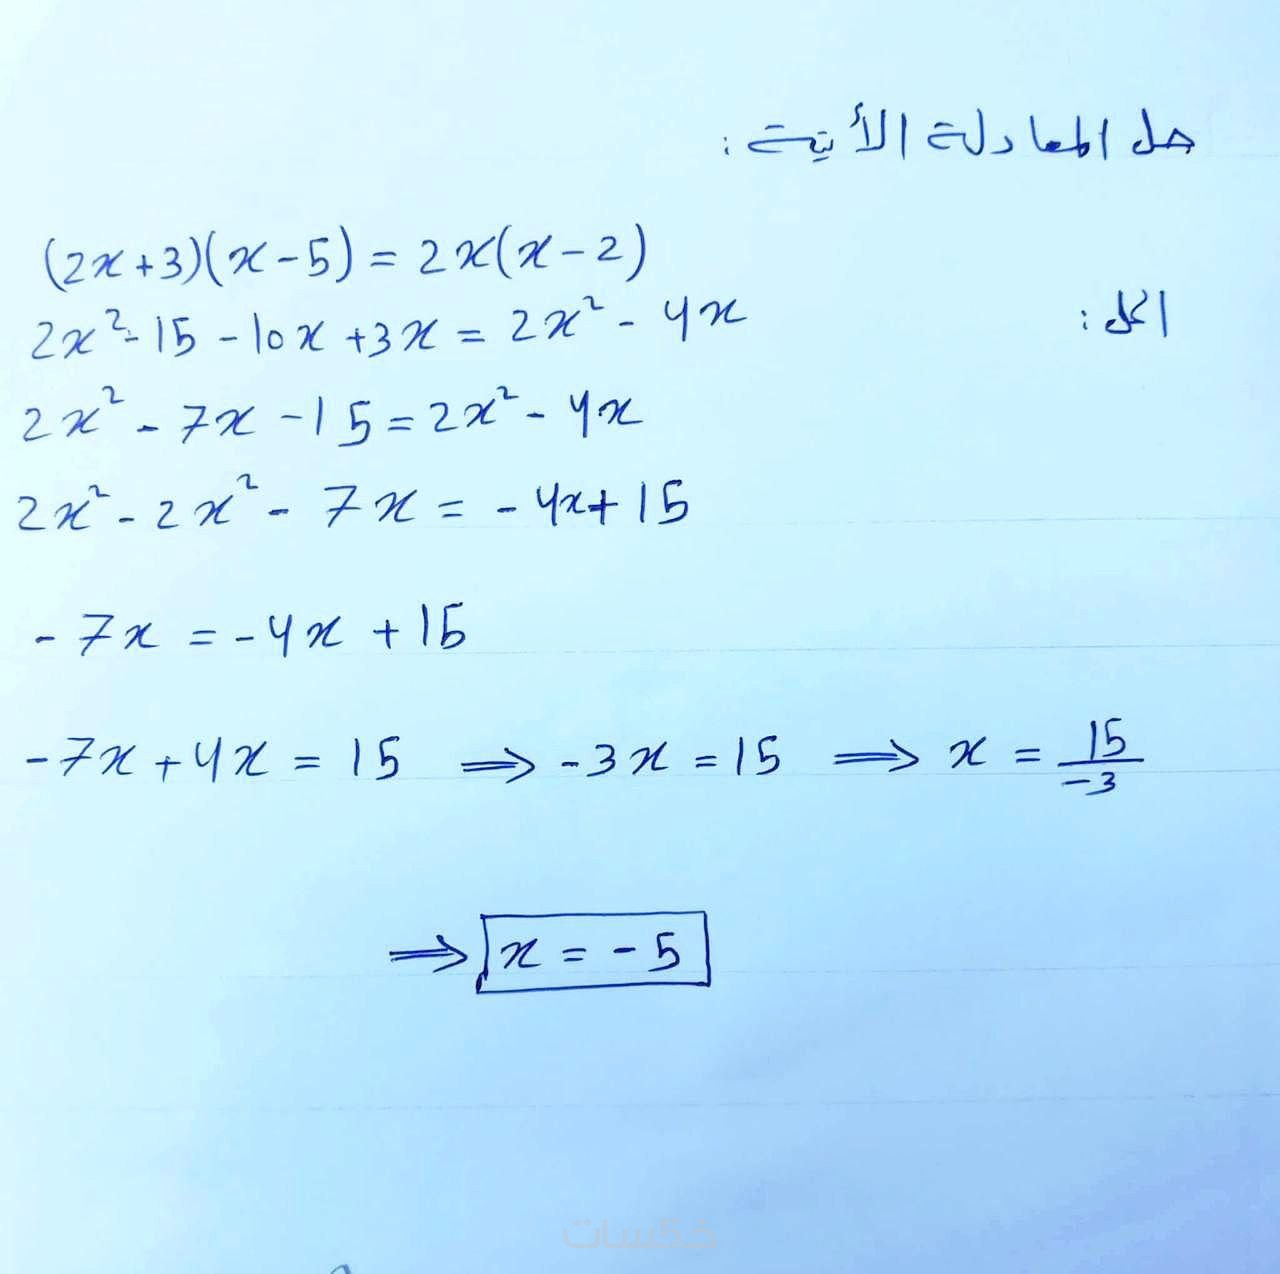 حل المعادلة الأتية :
(2x+3)(x-5) = 2x(x-2)
الحل :
2x² - 15 - 10x + 3x = 2x² - 4x
2x² - 7x - 15 = 2x² - 4x
2x² - 2x² - 7x = - 4x + 15
- 7x = - 4x + 15
- 7x + 4x = 15 ⟹ - 3x = 15 ⟹ x = 15/-3
⟹ x = - 5
خمسات